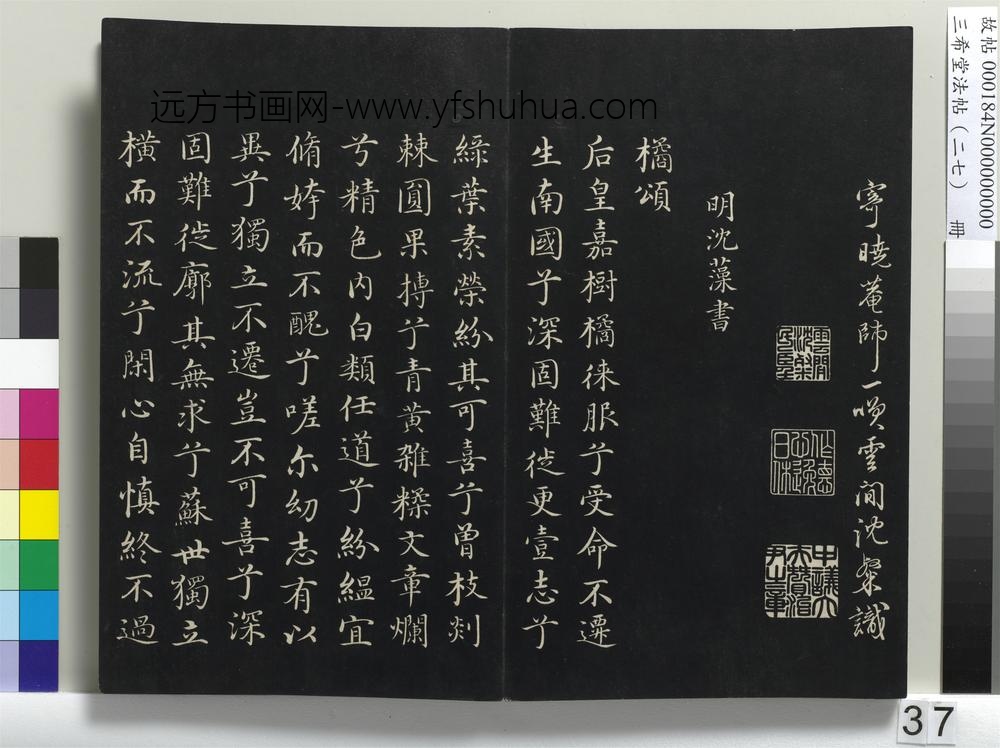 寄曉菴師一噗雲間沈粲識
雲間沈粲民望
作德心逸日休
中議大夫贊治尹之章
明沈藻書
橘頌
后皇嘉樹橘徠服兮受命不遷
生南國兮深固難徙更壹志兮
綠葉素榮紛其可喜兮曾枝剡
棘圓果摶兮青黃雜糅文章爛
兮精色內白類任道兮紛緼宜
脩姱而不醜兮嗟尔幼志有以
異兮獨立不遷豈不可喜兮深
固難徙廓其無求兮蘇世獨立
橫而不流兮閑心自慎終不過
远方书画网-www.yfshuhua.com
故帖 000184N000000000
三希堂法帖（二七） 冊
37